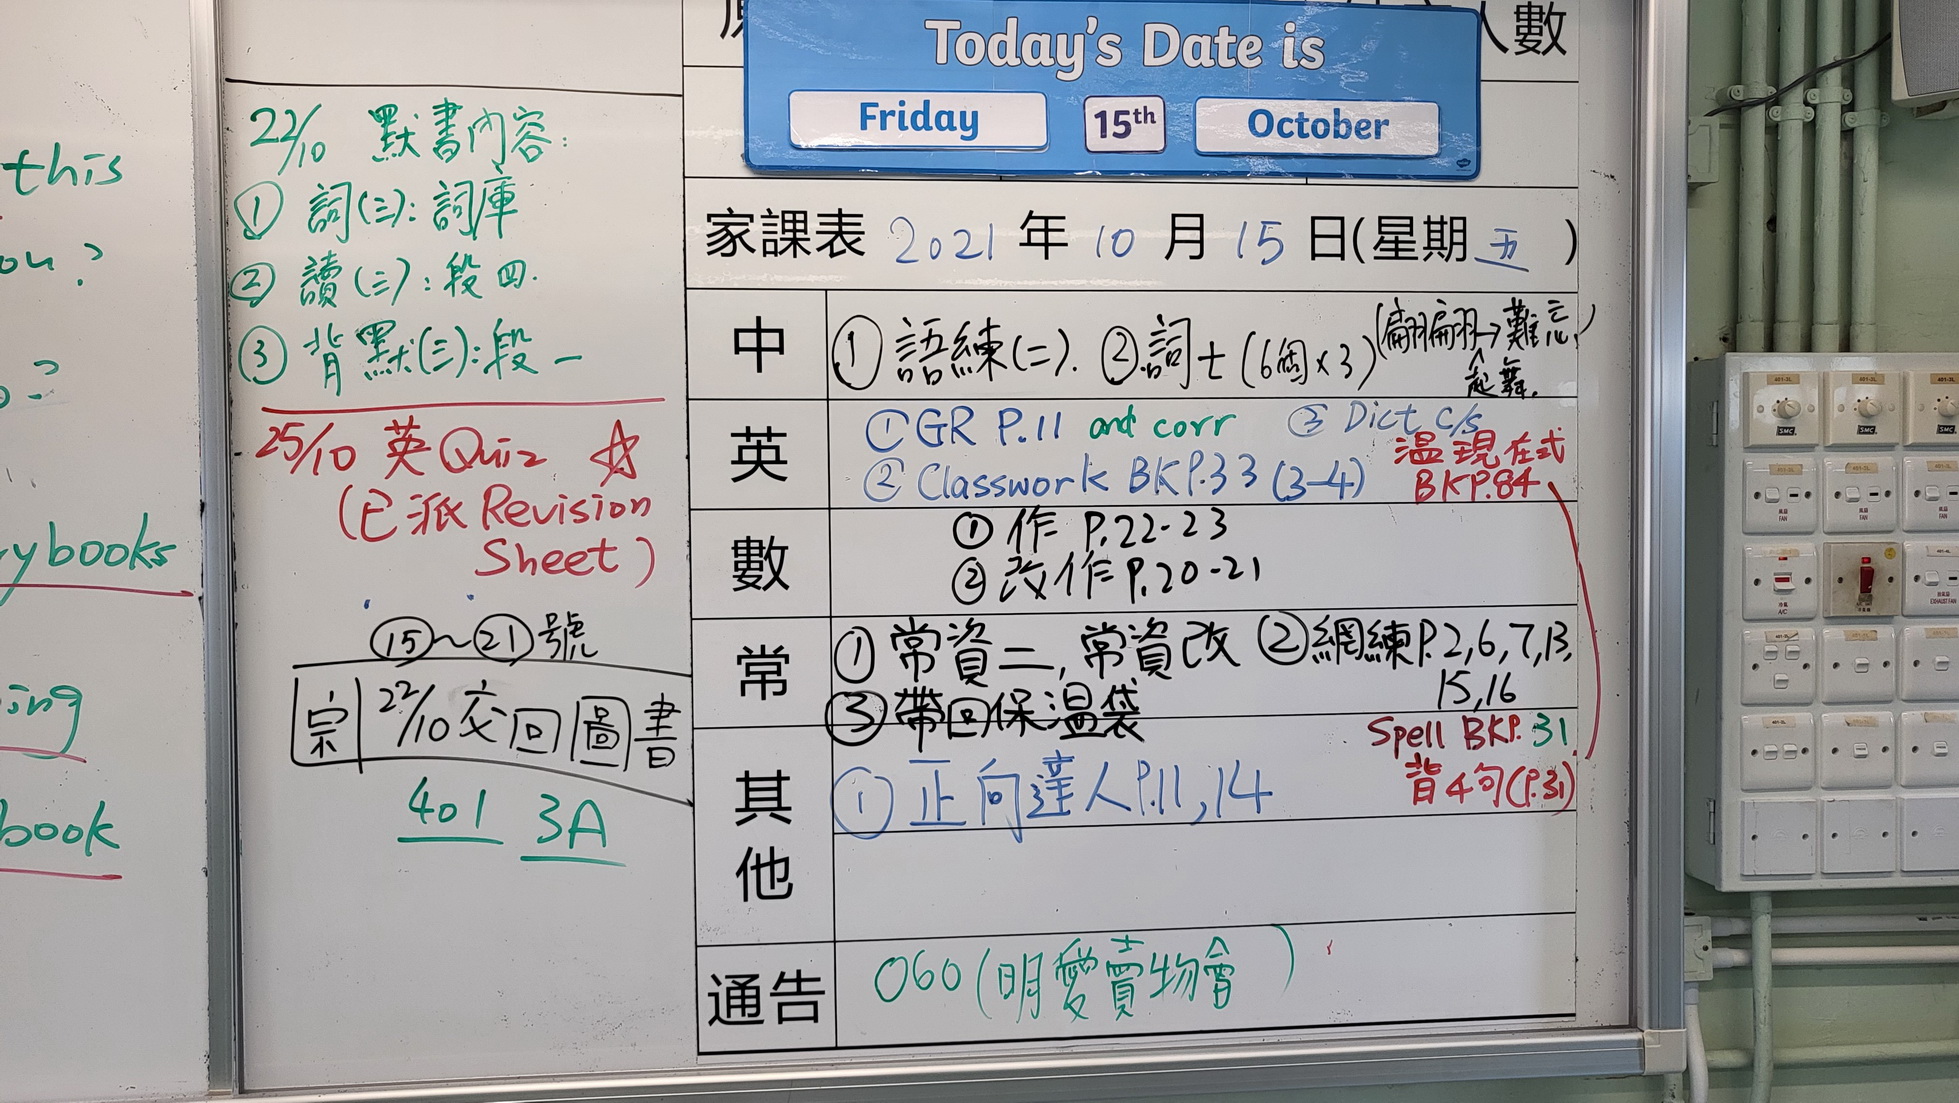 this
ou?
ybooks
ing
book
22/10 默書內容:
① 詞(三):詞庫
② 讀(三):段四.
③ 背默(三):段一
25/10 英Quiz ☆
(已派Revision
Sheet)
⑮~㉑號
宗 22/10交回圖書
401 3A
人數
Today's Date is
Friday 15th October
家課表 2021 年 10 月 15 日(星期五)
中 ① 語練(二). ② 詞士(6個×3)(翩翩→難忘)
起舞.
英 ① GR P.11 and corr ③ Dict c/s
② Classwork BKP.33 (3-4)
溫現在式
BKP.84
數 ① 作 P.22-23
② 改作P.20-21
常 ① 常資二,常資改 ②網練P.2,6,7,13,
15,16
③帶回保溫袋
Spell BKP. 31
背4句(P.31)
其他 ① 正向達人P.11,14
通告 060(明愛賣物會)